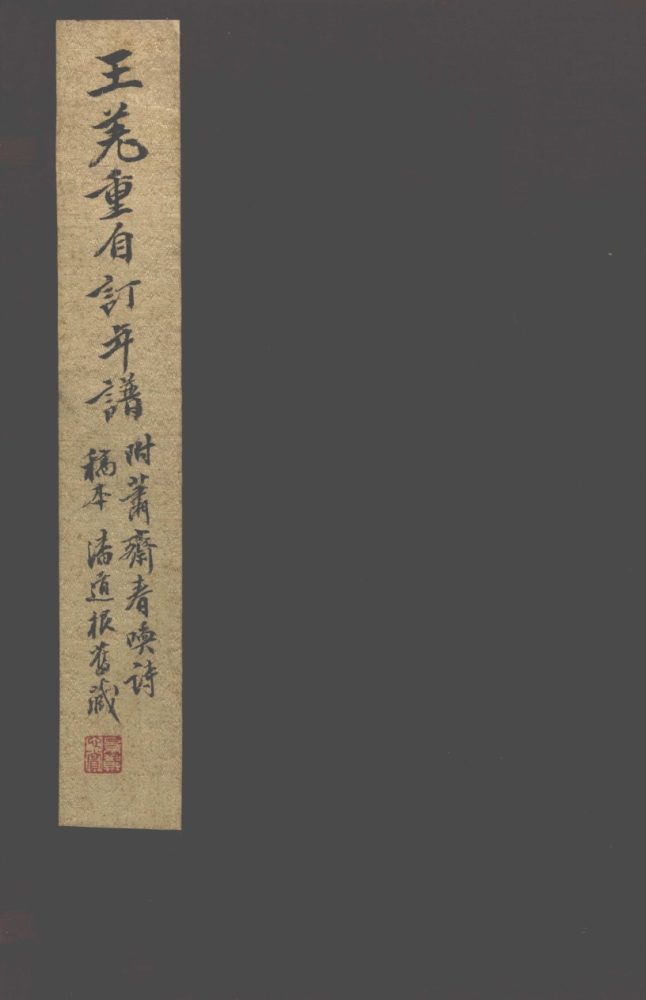 王羌重自訂年譜
附蕭齋春喚詩
稿本 潘道根舊藏